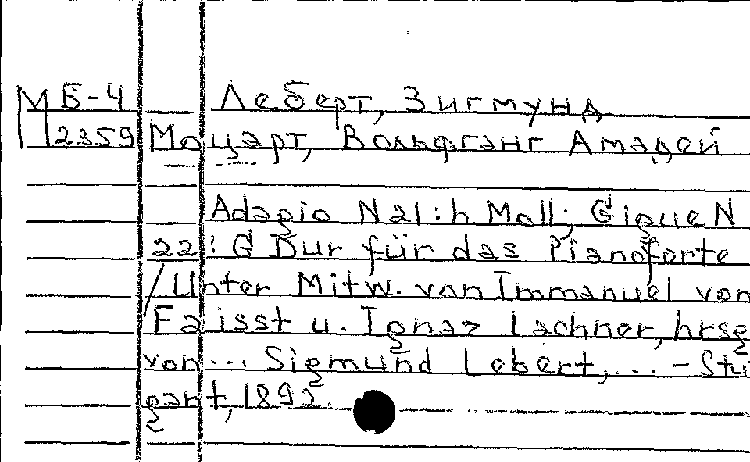 М Б-4 Леберт, Зигмунд
2359 Моцарт, Вольфганг Амадей
Adagio N21: h Moll; Gigue N
22: G Dur für das Pianoforte
/Unter Mitw. von Immanuel von
Faisst u. Ignaz Lachner, hrsg
von... Sigmund Lebert, ... - Stu
gart, 1892.